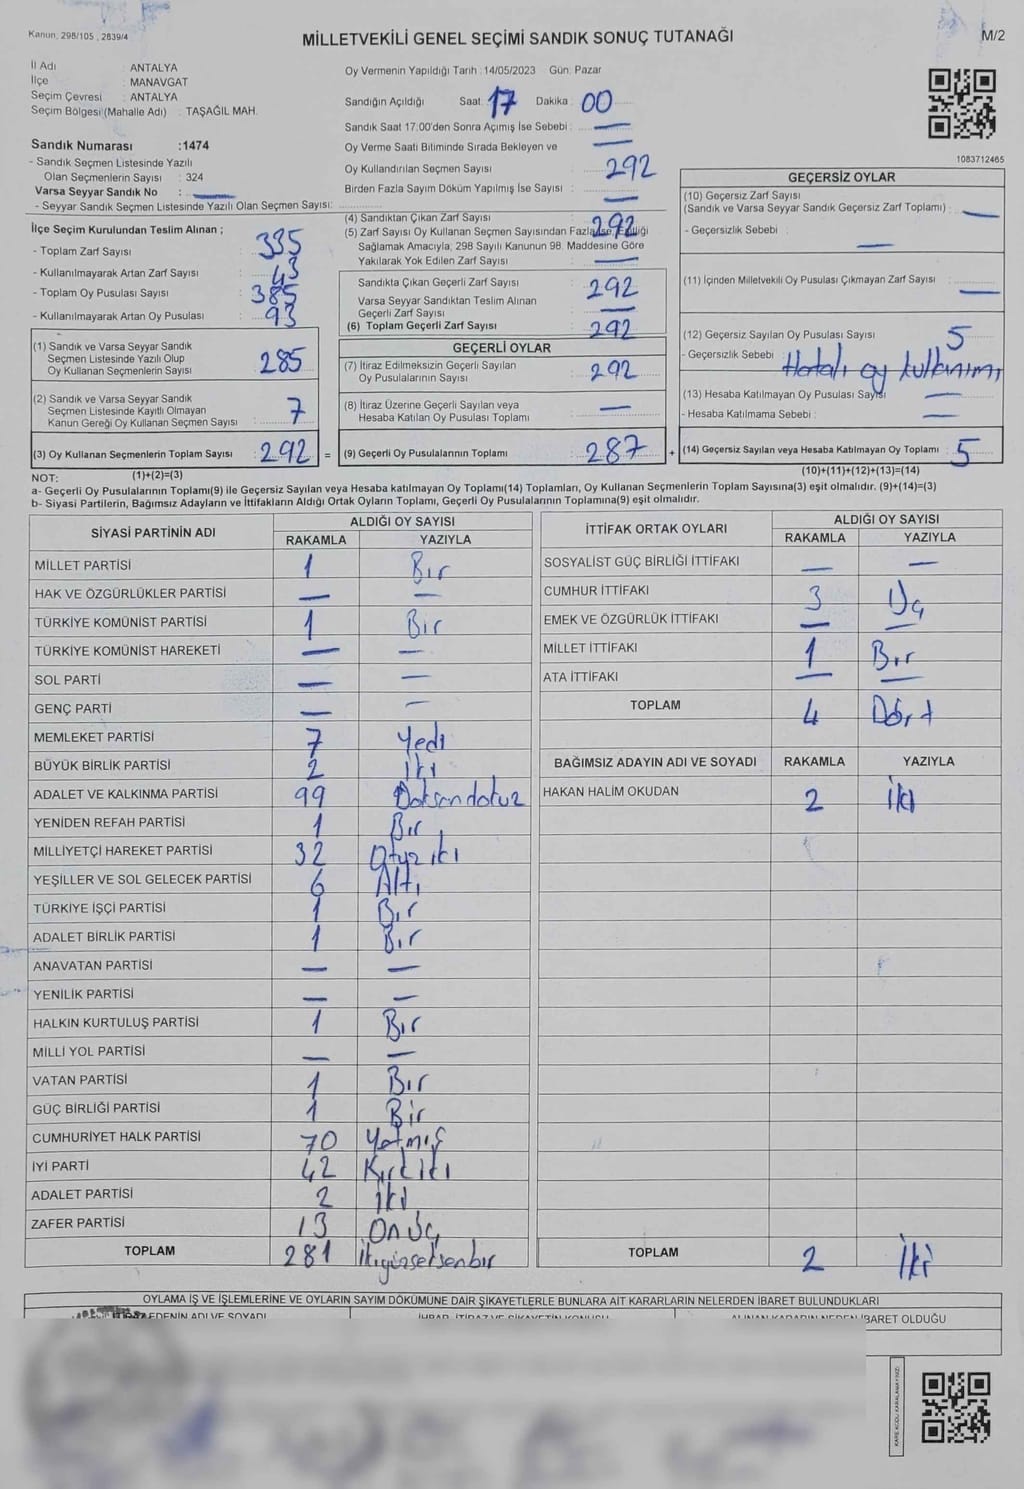 Kanun, 298/105 , 2839/4
MİLLETVEKİLİ GENEL SEÇİMİ SANDIK SONUÇ TUTANAĞI
M/2
İl Adı : ANTALYA
İlçe : MANAVGAT
Seçim Çevresi : ANTALYA
Seçim Bölgesi (Mahalle Adı) : TAŞAĞIL MAH.
Sandık Numarası :1474
- Sandık Seçmen Listesinde Yazılı
Olan Seçmenlerin Sayısı : 324
Varsa Seyyar Sandık No : —
- Seyyar Sandık Seçmen Listesinde Yazılı Olan Seçmen Sayısı:
Oy Vermenin Yapıldığı Tarih :14/05/2023 Gün: Pazar
Sandığın Açıldığı Saat: 17 Dakika : 00
Sandık Saat 17:00'den Sonra Açımış İse Sebebi : —
Oy Verme Saati Bitiminde Sırada Bekleyen ve —
Oy Kullandırılan Seçmen Sayısı : 292
Birden Fazla Sayım Döküm Yapılmış İse Sayısı : —
1083712465
İlçe Seçim Kurulundan Teslim Alınan ;
- Toplam Zarf Sayısı : 335
- Kullanılmayarak Artan Zarf Sayısı : 43
- Toplam Oy Pusulası Sayısı : 385
- Kullanılmayarak Artan Oy Pusulası : 93
(1) Sandık ve Varsa Seyyar Sandık
Seçmen Listesinde Yazılı Olup
Oy Kullanan Seçmenlerin Sayısı : 285
(2) Sandık ve Varsa Seyyar Sandık
Seçmen Listesinde Kayıtlı Olmayan
Kanun Gereği Oy Kullanan Seçmen Sayısı : 7
(3) Oy Kullanan Seçmenlerin Toplam Sayısı : 292 =
(1)+(2)=(3)
(4) Sandıktan Çıkan Zarf Sayısı : 292
(5) Zarf Sayısı Oy Kullanan Seçmen Sayısından Fazla ise, Eşitliği
Sağlamak Amacıyla, 298 Sayılı Kanunun 98. Maddesine Göre
Yakılarak Yok Edilen Zarf Sayısı : —
Sandıkta Çıkan Geçerli Zarf Sayısı : 292
Varsa Seyyar Sandıktan Teslim Alınan
Geçerli Zarf Sayısı : —
(6) Toplam Geçerli Zarf Sayısı : 292
GEÇERLİ OYLAR
(7) İtiraz Edilmeksizin Geçerli Sayılan
Oy Pusulalarının Sayısı : 292
(8) İtiraz Üzerine Geçerli Sayılan veya
Hesaba Katılan Oy Pusulası Toplamı : —
(9) Geçerli Oy Pusulalarının Toplamı : 287 +
GEÇERSİZ OYLAR
(10) Geçersiz Zarf Sayısı
(Sandık ve Varsa Seyyar Sandık Geçersiz Zarf Toplamı) : —
- Geçersizlik Sebebi : —
(11) İçinden Milletvekili Oy Pusulası Çıkmayan Zarf Sayısı : —
(12) Geçersiz Sayılan Oy Pusulası Sayısı : 5
- Geçersizlik Sebebi : Hatalı oy kullanımı
(13) Hesaba Katılmayan Oy Pusulası Sayısı : —
- Hesaba Katılmama Sebebi : —
(14) Geçersiz Sayılan veya Hesaba Katılmayan Oy Toplamı : 5
(10)+(11)+(12)+(13)=(14)
NOT:
a- Geçerli Oy Pusulalarının Toplamı(9) ile Geçersiz Sayılan veya Hesaba katılmayan Oy Toplamı(14) Toplamları, Oy Kullanan Seçmenlerin Toplam Sayısına(3) eşit olmalıdır. (9)+(14)=(3)
b- Siyasi Partilerin, Bağımsız Adayların ve İttifakların Aldığı Ortak Oyların Toplamı, Geçerli Oy Pusulalarının Toplamına(9) eşit olmalıdır.
SİYASİ PARTİNİN ADI ALDIĞI OY SAYISI
RAKAMLA YAZIYLA
MİLLET PARTİSİ 1 Bir
HAK VE ÖZGÜRLÜKLER PARTİSİ — —
TÜRKİYE KOMÜNİST PARTİSİ 1 Bir
TÜRKİYE KOMÜNİST HAREKETİ — —
SOL PARTİ — —
GENÇ PARTİ — —
MEMLEKET PARTİSİ 7 Yedi
BÜYÜK BİRLİK PARTİSİ 2 İki
ADALET VE KALKINMA PARTİSİ 99 Doksandokuz
YENİDEN REFAH PARTİSİ 1 Bir
MİLLİYETÇİ HAREKET PARTİSİ 32 Otuziki
YEŞİLLER VE SOL GELECEK PARTİSİ 6 Altı
TÜRKİYE İŞÇİ PARTİSİ 1 Bir
ADALET BİRLİK PARTİSİ 1 Bir
ANAVATAN PARTİSİ — —
YENİLİK PARTİSİ — —
HALKIN KURTULUŞ PARTİSİ 1 Bir
MİLLİ YOL PARTİSİ — —
VATAN PARTİSİ 1 Bir
GÜÇ BİRLİĞİ PARTİSİ 1 Bir
CUMHURİYET HALK PARTİSİ 70 Yetmiş
İYİ PARTİ 42 Kırkiki
ADALET PARTİSİ 2 İki
ZAFER PARTİSİ 13 Onüç
TOPLAM 281 İkiyüzseksenbir
İTTİFAK ORTAK OYLARI ALDIĞI OY SAYISI
RAKAMLA YAZIYLA
SOSYALİST GÜÇ BİRLİĞİ İTTİFAKI — —
CUMHUR İTTİFAKI 3 Üç
EMEK VE ÖZGÜRLÜK İTTİFAKI — —
MİLLET İTTİFAKI 1 Bir
ATA İTTİFAKI — —
TOPLAM 4 Dört
BAĞIMSIZ ADAYIN ADI VE SOYADI RAKAMLA YAZIYLA
HAKAN HALİM OKUDAN 2 İki
TOPLAM 2 İki
OYLAMA İŞ VE İŞLEMLERİNE VE OYLARIN SAYIM DÖKÜMÜNE DAİR ŞİKAYETLERLE BUNLARA AİT KARARLARIN NELERDEN İBARET BULUNDUKLARI
EDENİN ADI VE SOYADI İHBAR, İTİRAZ VE ŞİKAYETİN KONUSU ALINAN KARARIN NEDEN İBARET OLDUĞU
KARE KODU KARALAMAYINIZ!